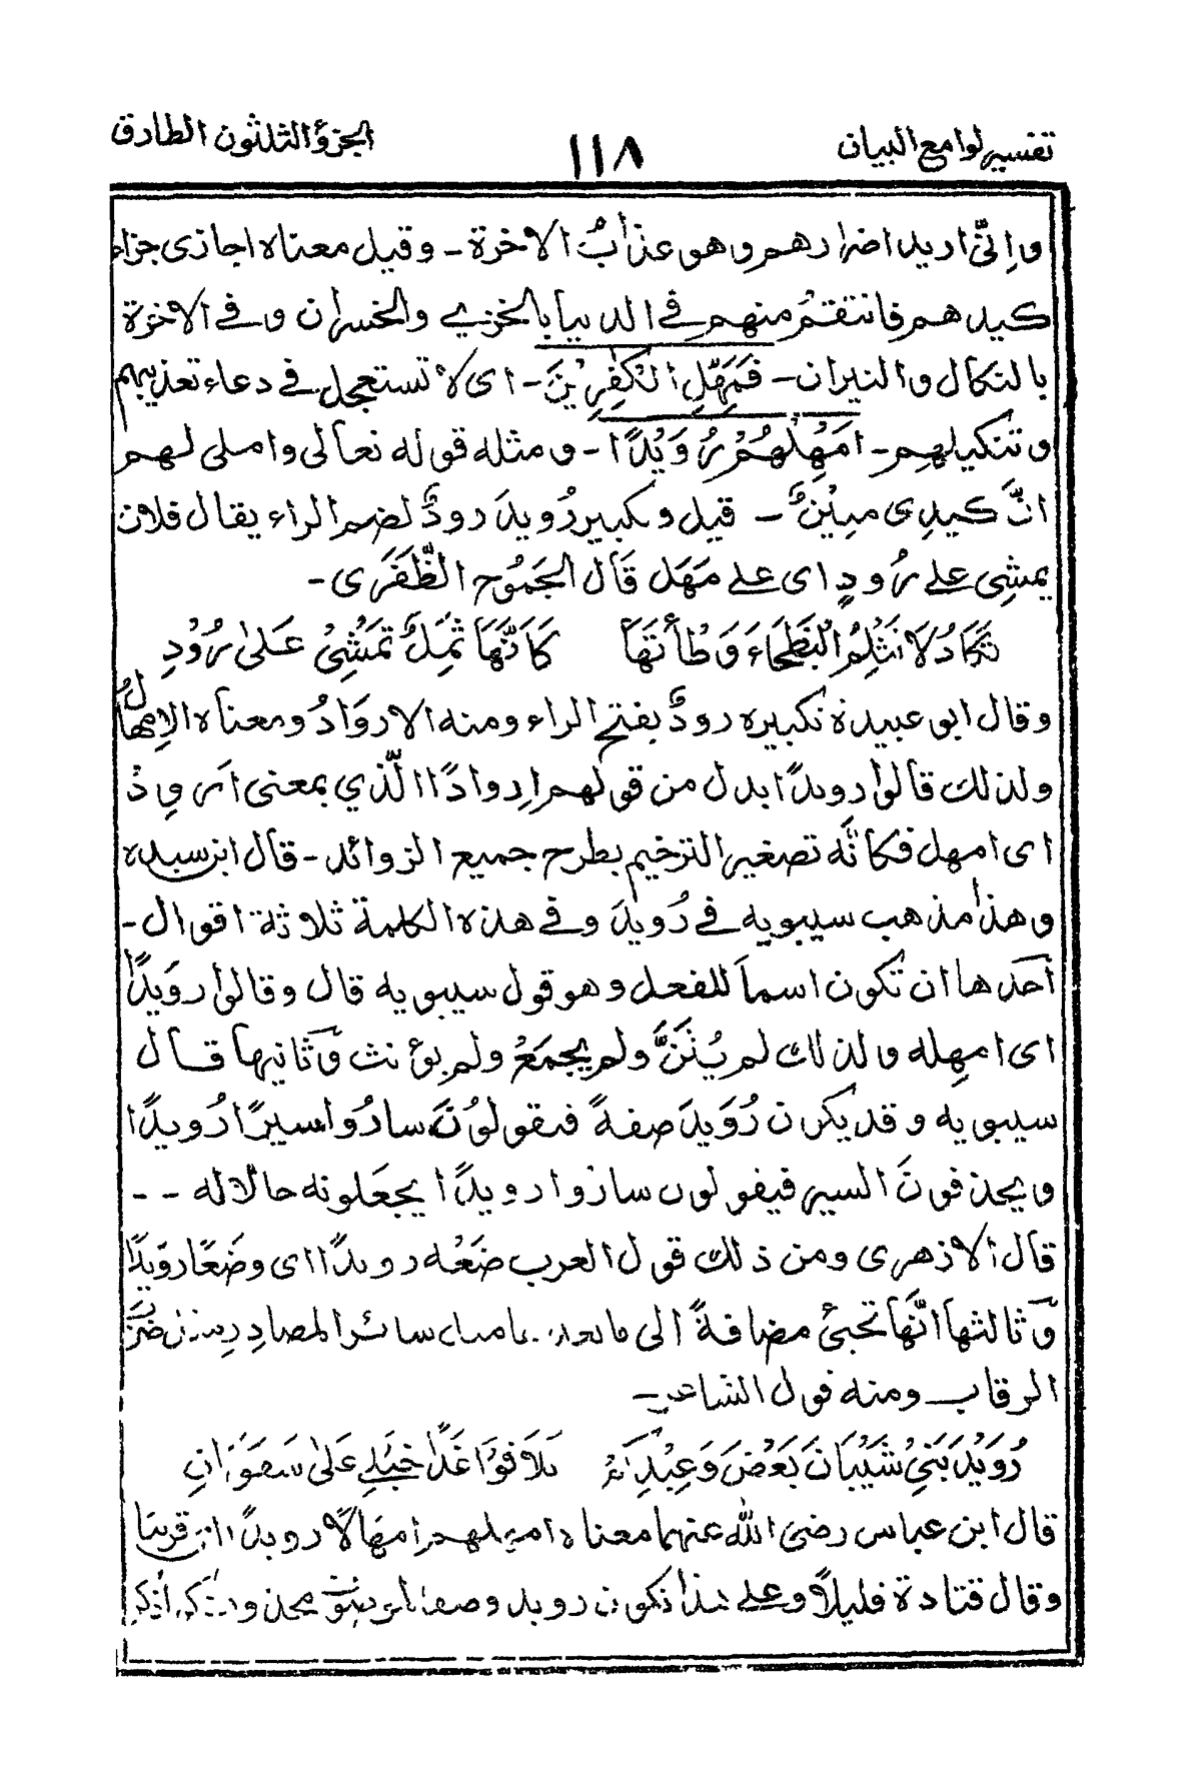 تفسير لوامع البيان
١١٨
الجزؤ الثلثون الطارق
وإنّى اريد اضرارهم وهو عذابُ الاخرة - وقيل معناه اجازى جزاء
كيدهم فانتقمُ منهم فى الدنيا بالخزي والخسران وفى الاخرة
بالنكال والنيران - فَمَهِّلِ الْكٰفِرِيْنَ - اى لا تستعجل فى دعاء تعذيبهم
وتنكيلهم - اَمْهِلْهُمْ رُوَيْدًا - ومثله قوله تعالى واملى لهم
انَّ كيدى مبينٌ - قيل وكبير رُويدَ رودٌ لضم الراء يقال فلان
يمشِى على رُودٍ اى على مَهَل قَال الجَمُوح الظَّفَرَى -
تَكَادُ لَا تَثْلِمُ الْبَطْحَاءَ وَطْأَتَهَا كَاَنَّهَا ثَمِلٌ تَمَشِىْ عَلىٰ رُوْدِ
وقال ابو عبيدة تكبيره رودٌ بفتح الراء ومنه الاروَادُ ومعناه الإمهالُ
ولذلك قالوا رويدًا بدل من قولهم إرواداً الّذي بمعنى اَرْوِدْ
اى امهل فكانّه تصغير الترخيم بطرح جميع الزوائد - قال ابن سيده
وهذا مذهب سيبويه فى رُويدَ وفى هذه الكلمة ثلاثة اقوال -
اَحدها ان تكون اسماً للفعل وهو قول سيبويه قال وقالوا رويدًا
اى امهِله ولذلك لم يُثَنَّ ولم يجمَعْ ولم يؤنث وثانيها قال
سيبويه وقد يكون رُوَيدَ صفةً فيقولوُنَ سارُوا سيرًا رُويدًا
ويحذفونَ السير فيقولون ساروا رويدًا يجعَلونه حالا له - -
قال الازهرى ومن ذلك قول العرب ضَعْه رويدًا اى وضَعًا رويدًا
وثالثها انّها تجئ مضافةً الى سائر المصادر
الرقاب ومنه قول الشاعر -
رُوَيْدَ بَنِىْ شَيْبَانَ بَعْضَ وَعِيْدِكُمْ تلاقُوْا غَدًا خَيْلِى عَلىٰ سَفَوَانِ
قال ابن عباس رضى الله عنهما معناه امهلهم إمهالًا رويدًا اى قريبا
وقال قتادة قليلًا وعلى هذا تكون رويد وصفا